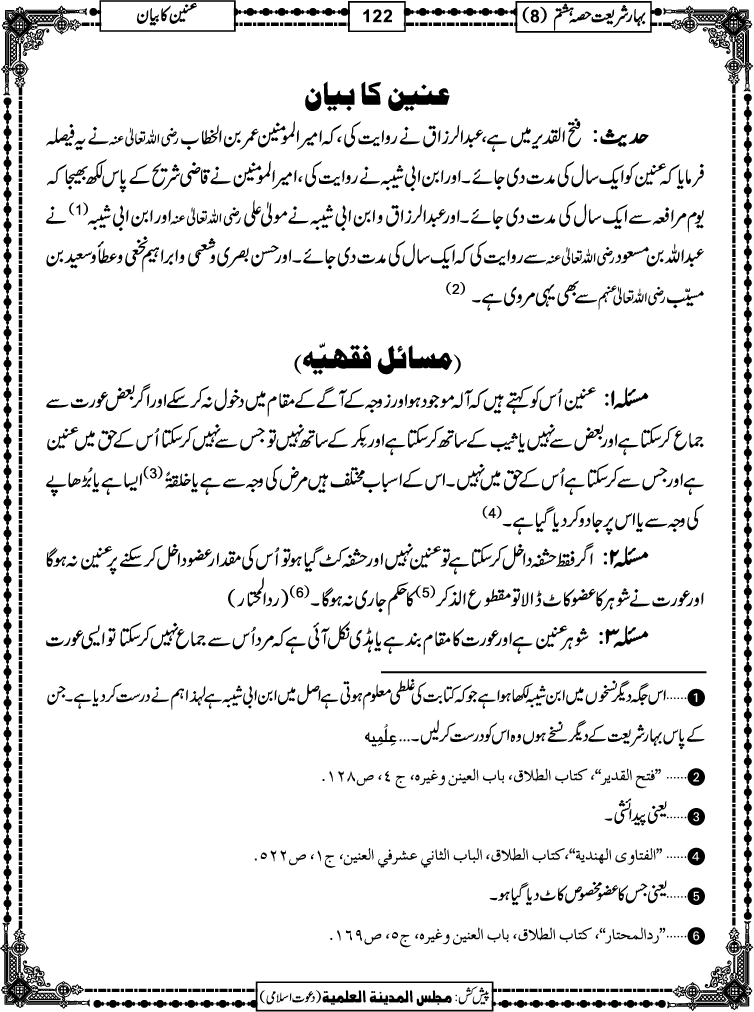 بہارِ شریعت حصہ ہشتم (8)
122
عنین کا بیان
عنین کا بیان
حدیث: فتح القدیر میں ہے، عبدالرزاق نے روایت کی، کہ امیر المومنین عمر بن الخطاب رضی اللہ تعالیٰ عنہ نے یہ فیصلہ
فرمایا کہ عنین کو ایک سال کی مدت دی جائے۔ اور ابن ابی شیبہ نے روایت کی، امیر المومنین نے قاضی شریح کے پاس لکھ بھیجا کہ
یوم مرافعہ سے ایک سال کی مدت دی جائے۔ اور عبدالرزاق و ابن ابی شیبہ نے مولیٰ علی رضی اللہ تعالیٰ عنہ اور ابن ابی شیبہ (1) نے
عبداللہ بن مسعود رضی اللہ تعالیٰ عنہ سے روایت کی کہ ایک سال کی مدت دی جائے۔ اور حسن بصری و شعبی و ابراہیم نخعی و عطا و سعید بن
مسیّب رضی اللہ تعالیٰ عنہم سے بھی یہی مروی ہے۔ (2)
(مسائل فقهيّه)
مسئلہ ۱: عنین اُس کو کہتے ہیں کہ آلہ موجود ہو اور زوجہ کے آگے کے مقام میں دخول نہ کر سکے اور اگر بعض عورت سے
جماع کر سکتا ہے اور بعض سے نہیں یا ثیب کے ساتھ کر سکتا ہے اور بکر کے ساتھ نہیں تو جس سے نہیں کر سکتا اُس کے حق میں عنین
ہے اور جس سے کر سکتا ہے اُس کے حق میں نہیں۔ اس کے اسباب مختلف ہیں مرض کی وجہ سے ہے یا خلقۃً (3) ایسا ہے یا بُڑھاپے
کی وجہ سے یا اس پر جادو کر دیا گیا ہے۔ (4)
مسئلہ ۲: اگر فقط حشفہ داخل کر سکتا ہے تو عنین نہیں اور حشفہ کٹ گیا ہو تو اُس کی مقدار عضو داخل کر سکنے پر عنین نہ ہوگا
اور عورت نے شوہر کا عضو کاٹ ڈالا تو مقطوع الذکر (5) کا حکم جاری نہ ہوگا۔ (6) (ردالمحتار)
مسئلہ ۳: شوہر عنین ہے اور عورت کا مقام بند ہے یا ہڈی نکل آئی ہے کہ مرد اُس سے جماع نہیں کر سکتا تو ایسی عورت
1 ......اس جگہ دیگر نسخوں میں ابن شیبہ لکھا ہوا ہے جو کہ کتابت کی غلطی معلوم ہوتی ہے اصل میں ابن ابی شیبہ ہے لہٰذا ہم نے درست کر دیا ہے۔ جن
کے پاس بہار شریعت کے دیگر نسخے ہوں وہ اس کو درست کر لیں۔ ... عِلْمِيه
2 ...... ”فتح القدير“، كتاب الطلاق، باب العينن وغيره، ج ٤، ص١٢٨.
3 ......یعنی پیدائشی۔
4 ...... ”الفتاوى الهندية“،كتاب الطلاق، الباب الثاني عشرفي العنين، ج١، ص٥٢٢.
5 ......یعنی جس کا عضو مخصوص کاٹ دیا گیا ہو۔
6 ......”ردالمحتار“، كتاب الطلاق، باب العنين وغيره، ج٥، ص١٦٩.
پیش کش: مجلس المدينة العلمية (دعوت اسلامی)